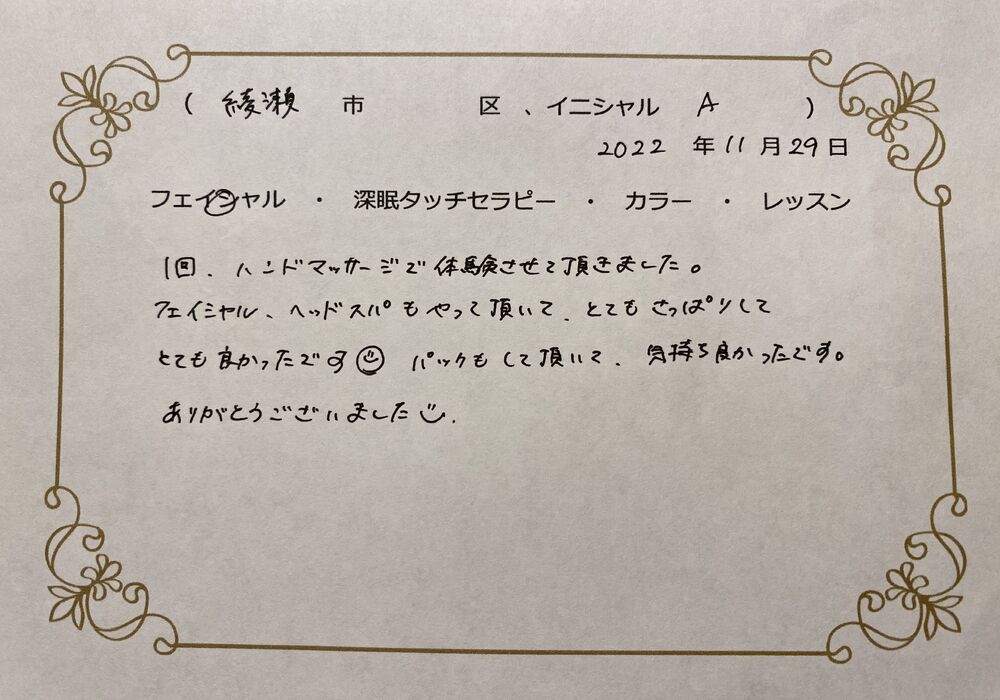 ( 綾瀬 市 区 、イニシャル A )
2022 年 11 月 29 日
フェイシャル ・ 深眠タッチセラピー ・ カラー ・ レッスン
1回、ハンドマッサージで体験させて頂きました。
フェイシャル、ヘッドスパもやって頂いて、とてもさっぱりして
とても良かったです☺ パックもして頂いて、気持ち良かったです。
ありがとうございました☺.